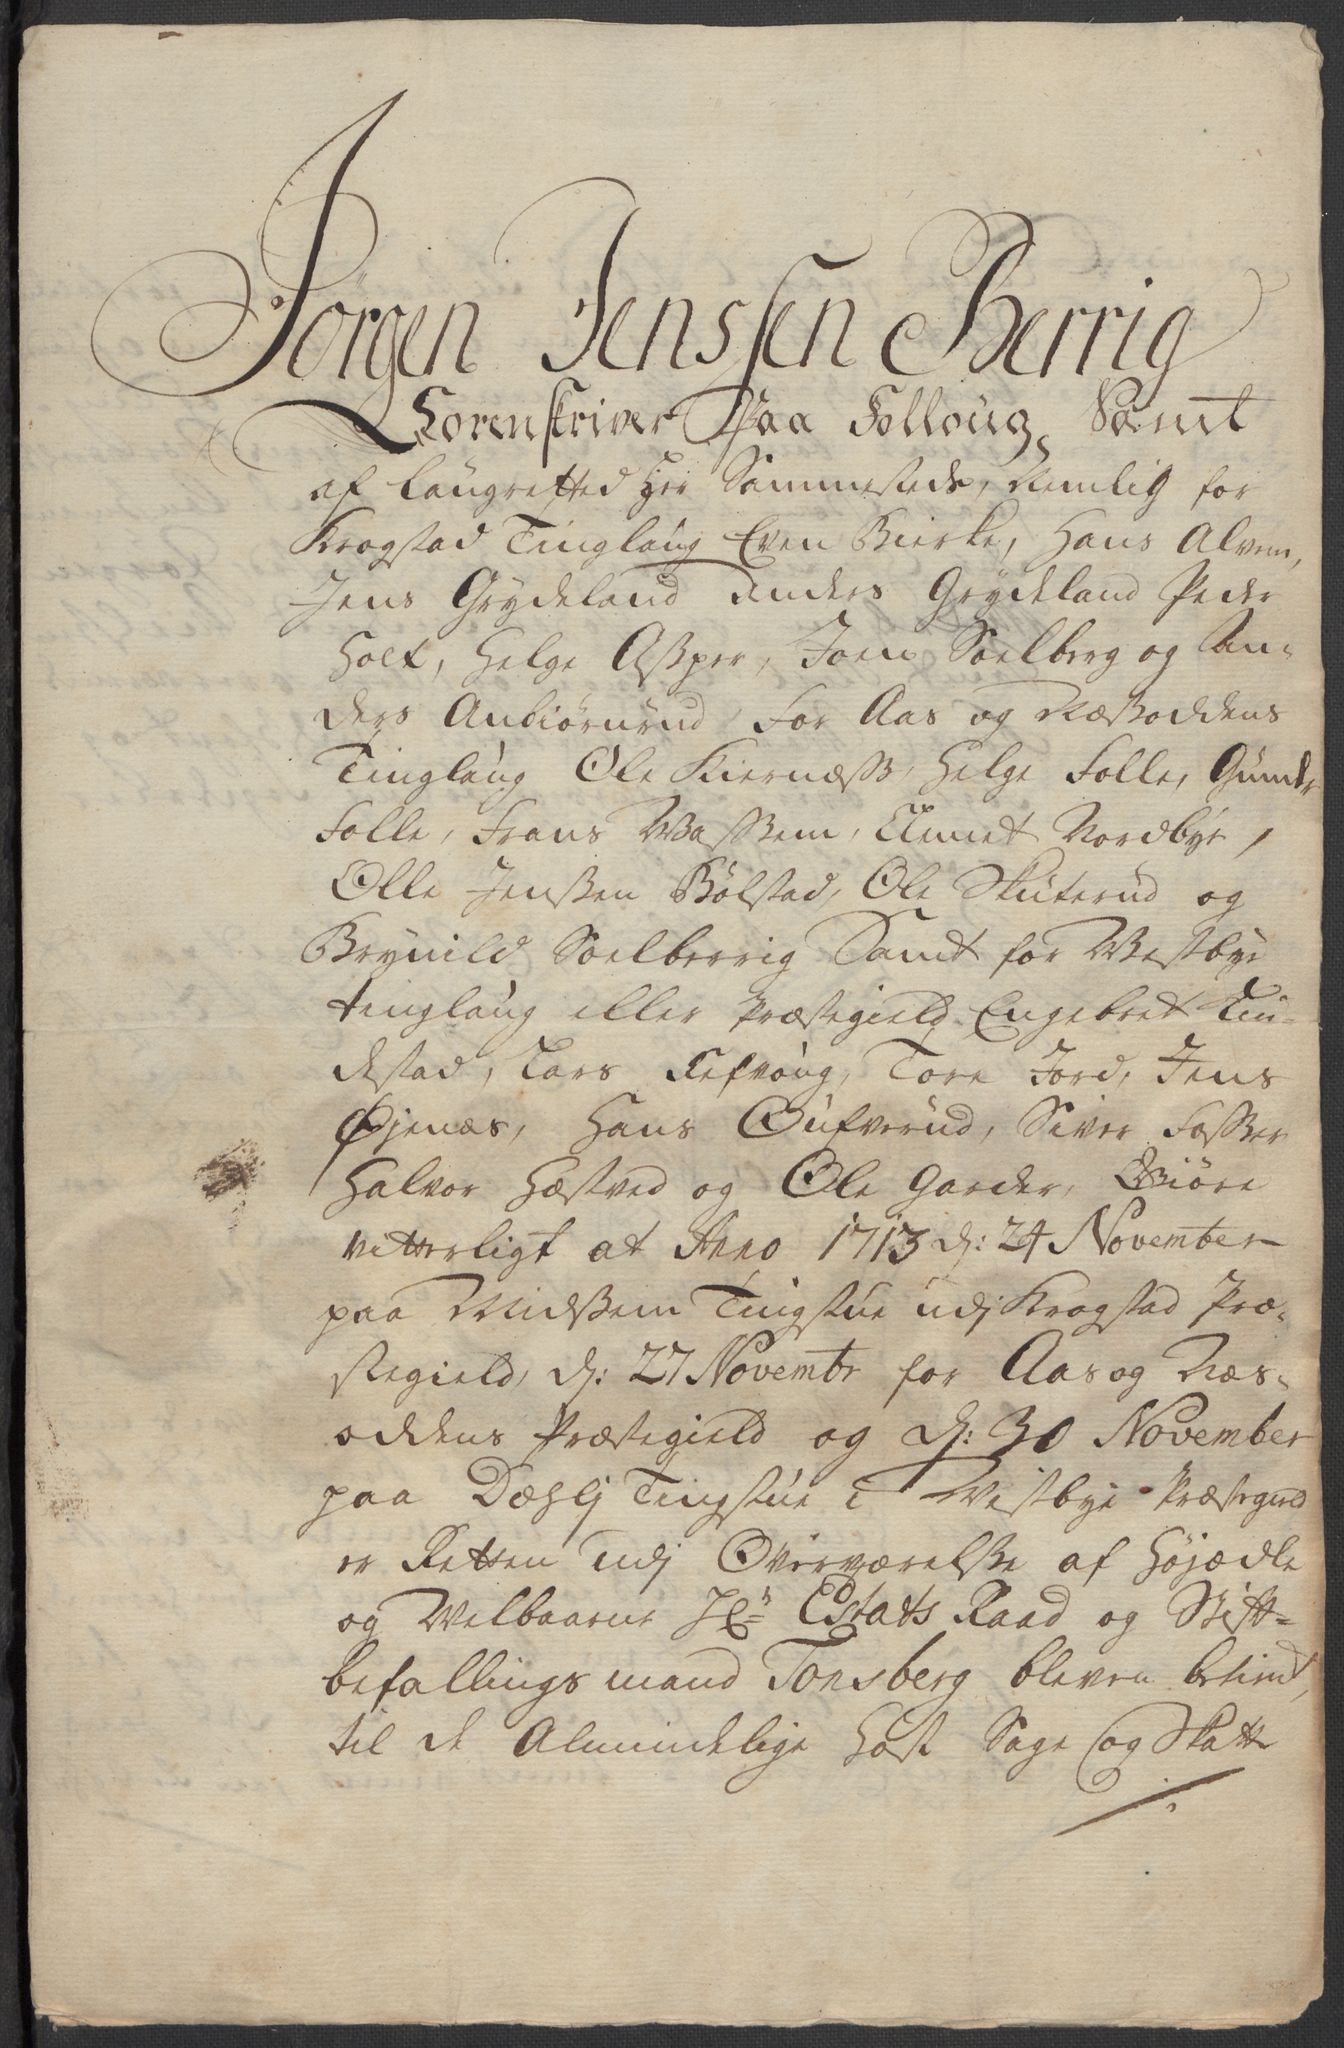 Jörgen Jenssen Berrig
Sorenskriver Paa Folloug, Samt
af Laugretted Her Sammesteds, Nemlig for
Krogstad Tinglaug Even Bierke, Hans Alvem,
Jens Grydeland Anders Grydeland Peder
Holt, Helge Asper, Joen Soelberg og An-
ders Anbiørnrud, For Aas og Næssoddens
Tinglaug Ole Kiernæss, Helge Folle, Gunder
Folle, Frans Wassem, Clemet Nordbye,
Olle Jenssen Bølstad, Ole Skuterud og
Brynild Soelberrig Samt for Westbye
tinglaug eller Præstegield, Engebret
destad, Lars Refvoug, Tore Jord, Jens
Øjenæs, Hans Gufverud, Siver Fosser
Halvor Hæstved og Ole Garder, Giøre
vitterligt at Anno 1713 d: 24 November
paa Midssem Tingstue udj Krogstad Præ-
stegield, d: 27 Novembr for Aas og Næs-
oddens Præstegield og d: 30 November
paa Dæhlj Tingstue i Westbye Præstegield
er Retten udj Overværelsse af Højædle
og Welbaarne Hr Estats Raad og Stift-
befallings mand Tonsberg bleven betient,
til de Almindelige Høst Sage og Skatte